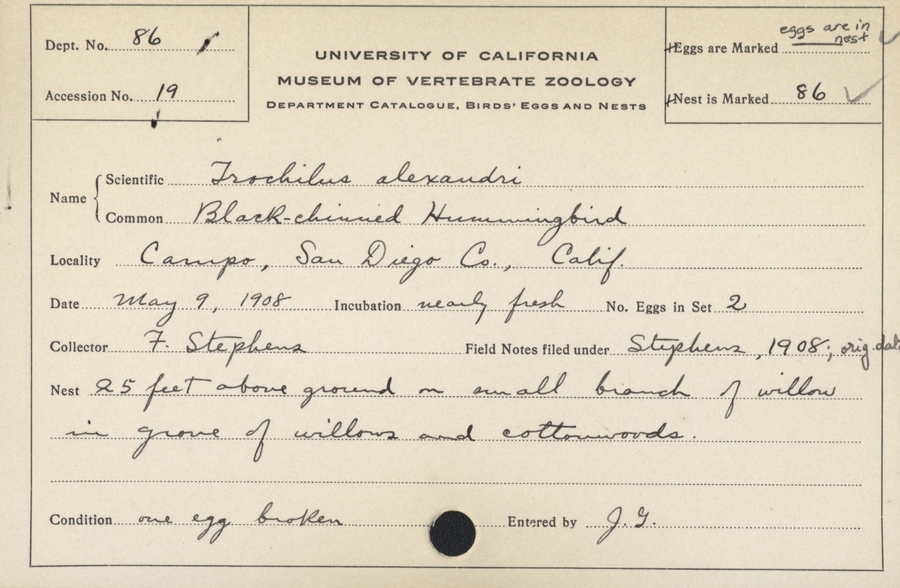 Dept. No. 86
Accession No. 19
UNIVERSITY OF CALIFORNIA
MUSEUM OF VERTEBRATE ZOOLOGY
DEPARTMENT CATALOGUE, BIRDS' EGGS AND NESTS
Eggs are Marked eggs are in nest
Nest is Marked 86
Name
Scientific Trochilus alexandri
Common Black-chinned Hummingbird
Locality Campo, San Diego Co., Calif.
Date May 9, 1908 Incubation nearly fresh No. Eggs in Set 2
Collector F. Stephens Field Notes filed under Stephens, 1908; orig. data
Nest 25 feet above ground on small branch of willow
in grove of willows and cottonwoods.
Condition one egg broken Entered by J. G.